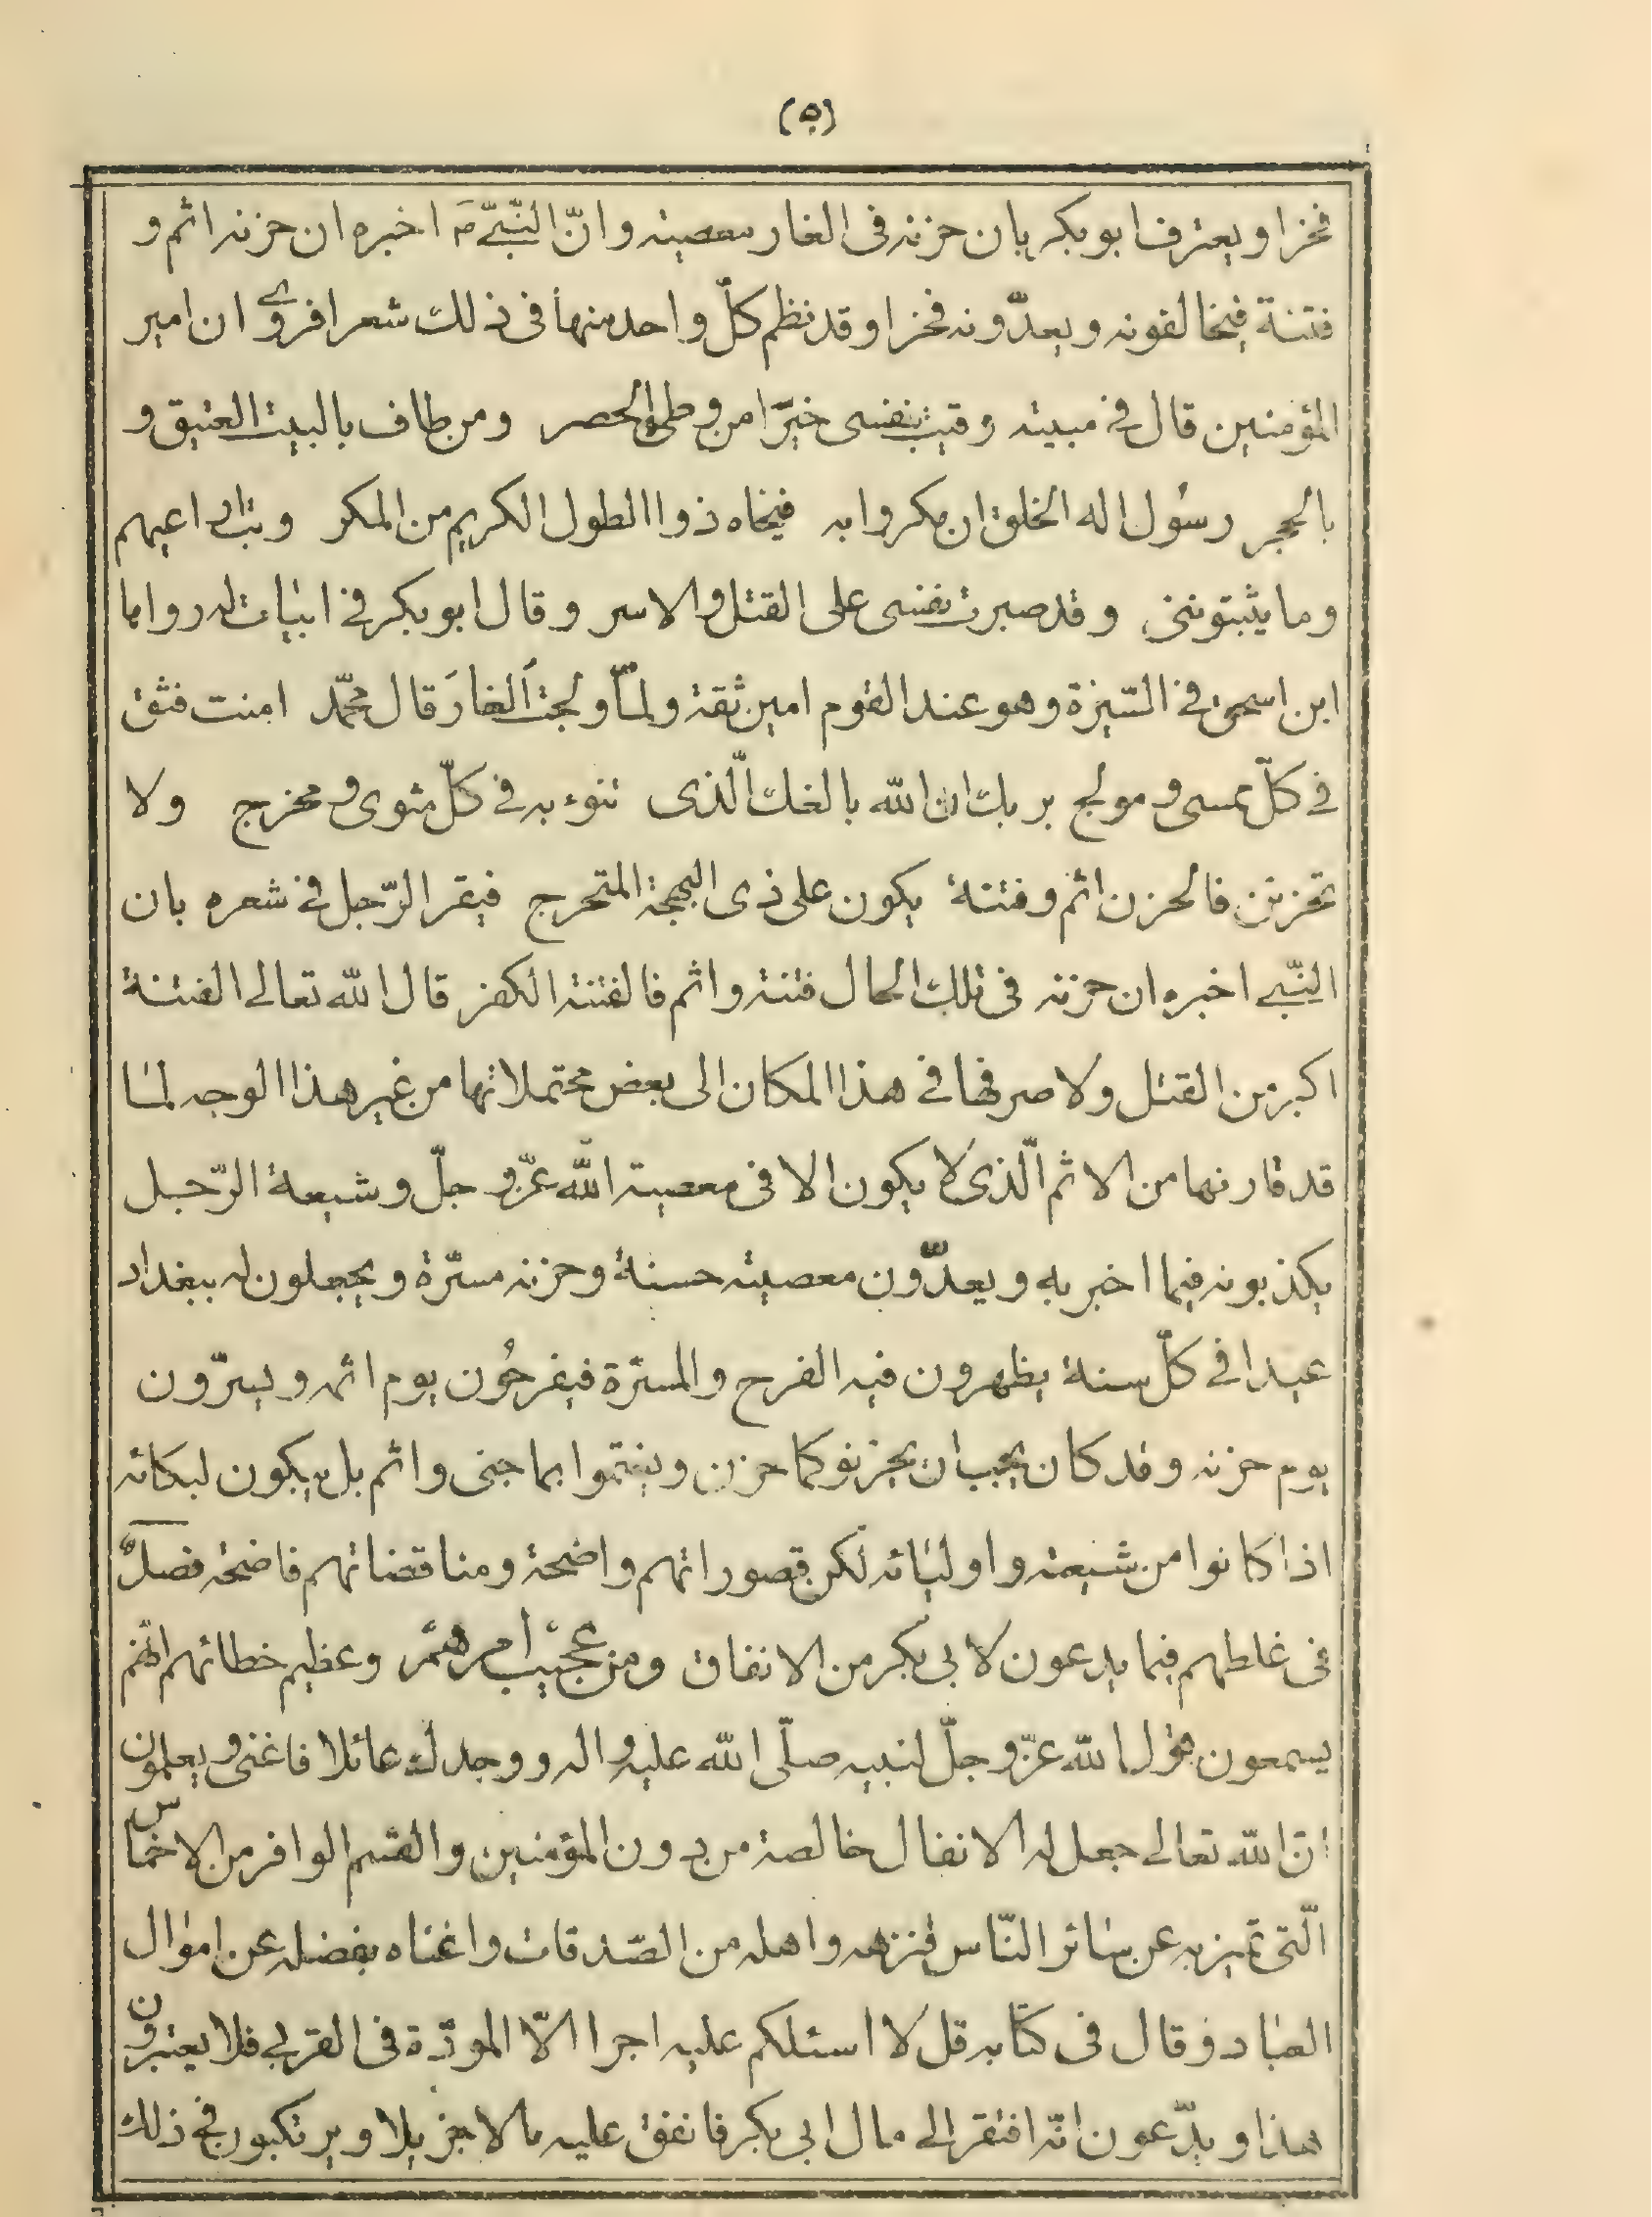 (٥)
فخرا ويعترف ابو بكر بان حزنه فى الغار معصيته وانّ النّبىّ ص اخبره ان حزنه اثم و
فتنة فيخالفونه ويعدّونه فخرا وقد نظم كلّ واحد منهما فى ذلك شعرا فروى ان امير
المؤمنين قال فى مبيته وقيت بنفسى خيرا من وطئ الحصر ومن طاف بالبيت العتيق و
بالحجر رسول اله الخلق ان مكروا به فنجاه ذوا الطول الكريم من المكر وبتّ اراعيهم
وما يثبتوننى وقد صبرت نفسى على القتل والاسر وقال ابو بكر فى ابيات له رواها
ابن اسحق فى السّيرة وهو عند القوم امين ثقة ولمّا ولجت الغار قال محمّد امنت فثق
فى كلّ ممسى ومولج بربك ان الله بالغك الّذى تنوء به فى كلّ مثوى ومخرج ولا
تحزنن فالحزن اثم وفتنة يكون على ذى البهجة المتحرج فيقر الرّجل فى شعره بان
النّبى اخبره ان حزنه فى تلك الحال فتنة واثم فالفتنة الكفر قال الله تعالى الفتنة
اكبر من القتل ولا صرفها فى هذا المكان الى بعض محتملاتها من غير هذا الوجه لما
قد قارنها من الاثم الّذى لا يكون الا فى معصية الله عزّ وجلّ وشيعة الرّجل
يكذبونه فيما اخبر به ويعدّون معصيته حسنة وحزنه مسرّة ويجعلون له ببغداد
عيدا فى كلّ سنة يظهرون فيه الفرح والمسرّة فيفرحون يوم اثمه ويسرّون
يوم حزنه وقد كان يجب ان يحزنوكما حزن ويغتموا بما جنى واثم بل يكون لبكائه
اذا كانوا من شيعته واوليائه لكن قصوراتهم واضحة ومناقضاتهم فاضحة فصل
فى غلطهم فيما يدعون لابى بكر من الانفاق ومن عجيب امرهم وعظيم خطائهم انّهم
يسمعون قول الله عزّ وجلّ لنبيه صلّى الله عليه واله ووجدك عائلا فاغنى ويعلمون
انّ الله تعالى جعل له الانفال خالصة من دون المؤمنين والقسم الوافر من الاخماس
الّتى تميز به عن سائر النّاس فنزهه واهله من الصّدقات واغناه بفضله عن اموال
العباد وقال فى كتابه قل لا اسئلكم عليه اجرا الّا المودّة فى القربى فلا يعتبرون
هذا ويدّعون انّه افتقر الى مال ابى بكر فانفق عليه مالا جزيلا ويرتكبون فى ذلك